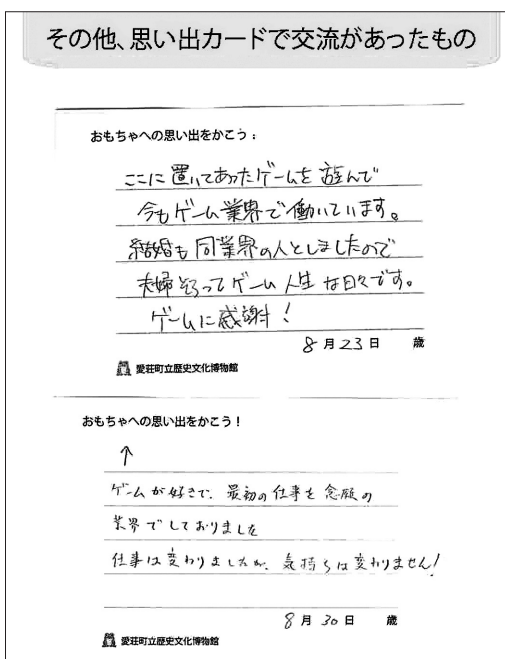 その他、思い出カードで交流があったもの
おもちゃへの思い出をかこう：
ここに置いてあったゲームを遊んで
今もゲーム業界で働いています。
結婚も同業界の人としましたので
夫婦そろってゲーム人生な日々です。
ゲームに感謝！
8月23日 歳
愛荘町立歴史文化博物館
おもちゃへの思い出をかこう！
↑
ゲームが好きで、最初の仕事を念願の
業界でしておりました
仕事は変わりましたが、気持ちは変わりません！
8月30日 歳
愛荘町立歴史文化博物館